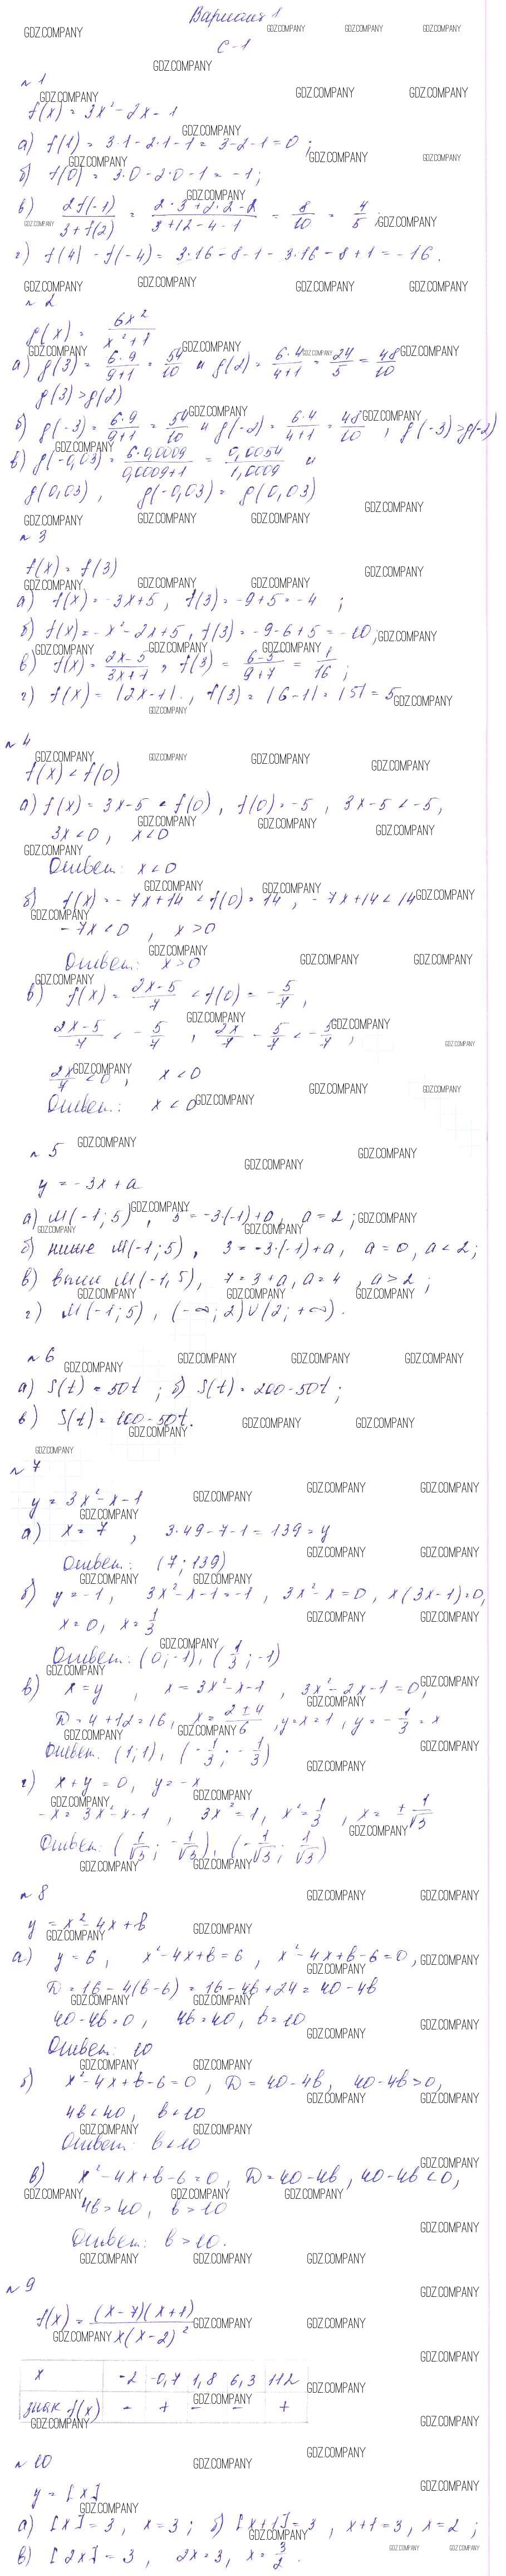 Вариант 1
С-1
№ 1
f(x) = 3x² - 2x - 1
а) f(1) = 3·1 - 2·1 - 1 = 3-2-1 = 0 ;
б) f(0) = 3·0 - 2·0 - 1 = -1;
в) 2f(-1)/(3+f(2)) = (2·3+2·2-2)/(3+12-4-1) = 8/10 = 4/5 ;
г) f(4) - f(-4) = 3·16-8-1-3·16-8+1 = -16.
№ 2
f(x) = 6x²/(x²+1)
а) f(3) = 6·9/(9+1) = 54/10 и f(2) = 6·4/(4+1) = 24/5 = 48/10
f(3) > f(2)
б) f(-3) = 6·9/(9+1) = 54/10 и f(-2) = 6·4/(4+1) = 48/10 , f(-3) > f(-2)
в) f(-0,03) = 6·0,0009/(0,0009+1) = 0,0054/1,0009 и
f(0,03) , f(-0,03) = f(0,03)
№ 3
f(x) = f(3)
а) f(x) = -3x+5 , f(3) = -9+5 = -4 ;
б) f(x) = -x²-2x+5 , f(3) = -9-6+5 = -10;
в) f(x) = (2x-5)/(3x+7) , f(3) = (6-5)/(9+7) = 1/16 ;
г) f(x) = |2x-1| , f(3) = |6-1| = |5| = 5
№ 4
f(x) < f(0)
а) f(x) = 3x-5 < f(0) , f(0) = -5 , 3x-5 < -5,
3x < 0 , x < 0
Ответ: x < 0
б) f(x) = -7x+14 < f(0) = 14 , -7x+14 < 14
-7x < 0 , x > 0
Ответ: x > 0
в) f(x) = (2x-5)/7 < f(0) = -5/7 ,
(2x-5)/7 < -5/7 , 2x/7 - 5/7 < -5/7 ,
2x/7 < 0 , x < 0
Ответ: x < 0
№ 5
y = -3x + a
а) M(-1; 5) , 5 = -3·(-1)+a, a = 2 ;
б) ниже M(-1; 5) , 3 = -3·(-1)+a, a = 0, a < 2;
в) выше M(-1, 5), 7 = 3+a, a = 4 , a > 2 ;
г) M(-1; 5) , (-∞; 2)∪(2; +∞).
№ 6
а) S(t) = 50t ; б) S(t) = 200-50t ;
в) S(t) = 100-50t.
№ 7
y = 3x² - x - 1
а) x = 7 , 3·49-7-1 = 139 = y
Ответ: (7; 139)
б) y = -1 , 3x²-x-1 = -1 , 3x²-x = 0 , x(3x-1) = 0,
x = 0, x = 1/3
Ответ: (0; -1), (1/3; -1)
в) x = y , x = 3x²-x-1 , 3x²-2x-1 = 0,
D = 4+12 = 16, x = (2±4)/6 , y = x = 1 , y = -1/3 = x
Ответ: (1; 1), (-1/3; -1/3)
г) x+y = 0, y = -x
-x = 3x²-x-1 , 3x² = 1, x² = 1/3 , x = ±1/√3
Ответ: (1/√3; -1/√3), (-1/√3; 1/√3)
№ 8
y = x²-4x+b
а) y = 6 , x²-4x+b = 6 , x²-4x+b-6 = 0,
D = 16-4(b-6) = 16-4b+24 = 40-4b
40-4b = 0, 4b = 40, b = 10
Ответ: 10
б) x²-4x+b-6 = 0 , D = 40-4b, 40-4b > 0,
4b < 40, b < 10
Ответ: b < 10
в) x²-4x+b-6 = 0 , D = 40-4b , 40-4b < 0,
4b > 40, b > 10
Ответ: b > 10.
№ 9
f(x) = (x-7)(x+1)/(x(x-2)²)
x -2 -0,7 1,8 6,3 112
знак f(x) - + - - +
№ 10
y = [x]
а) [x] = 3, x = 3 ; б) [x+1] = 3 , x+1 = 3, x = 2 ;
в) [2x] = 3 , 2x = 3, x = 3/2 .
GDZ.COMPANY